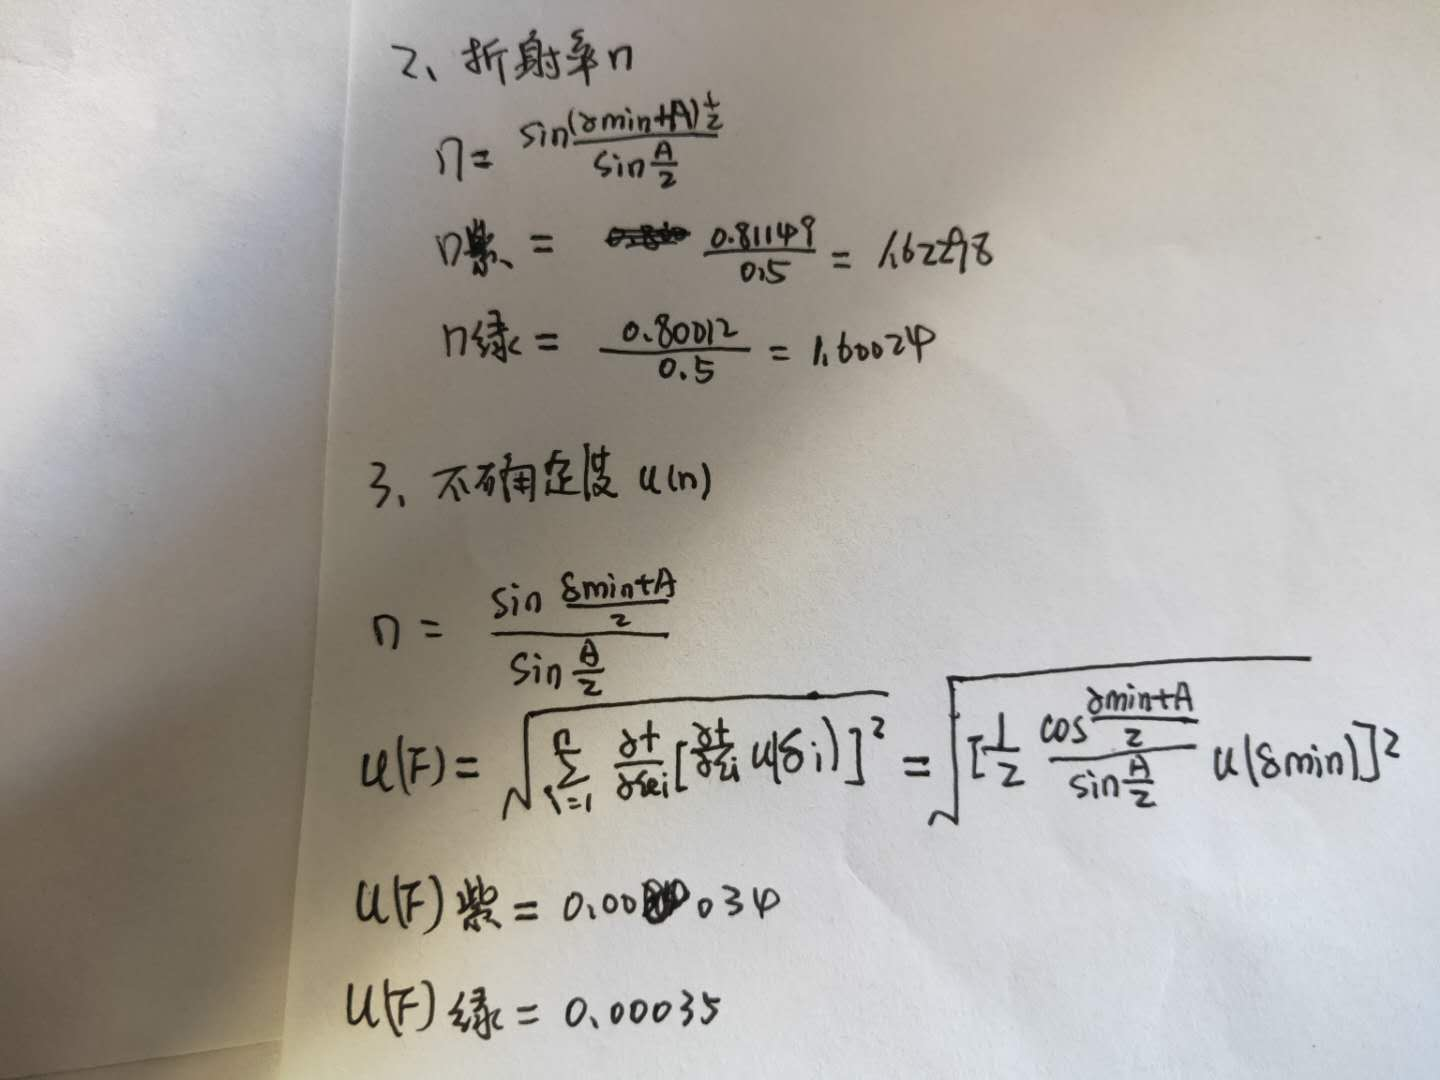 2、折射率n
n = sin(δmin+A)½ / sin A/2
n紫 = 0.81149 / 0.5 = 1.62298
n绿 = 0.80012 / 0.5 = 1.60024
3、不确定度 u(n)
n = sin (δmin+A)/2 / sin A/2
u(F) = √ Σ i=1 n ∂f/∂xi [∂f/∂xi u(δi)]² = √ [1/2 cos (δmin+A)/2 / sin A/2 u(δmin)]²
u(F)紫 = 0.00034
u(F)绿 = 0.00035